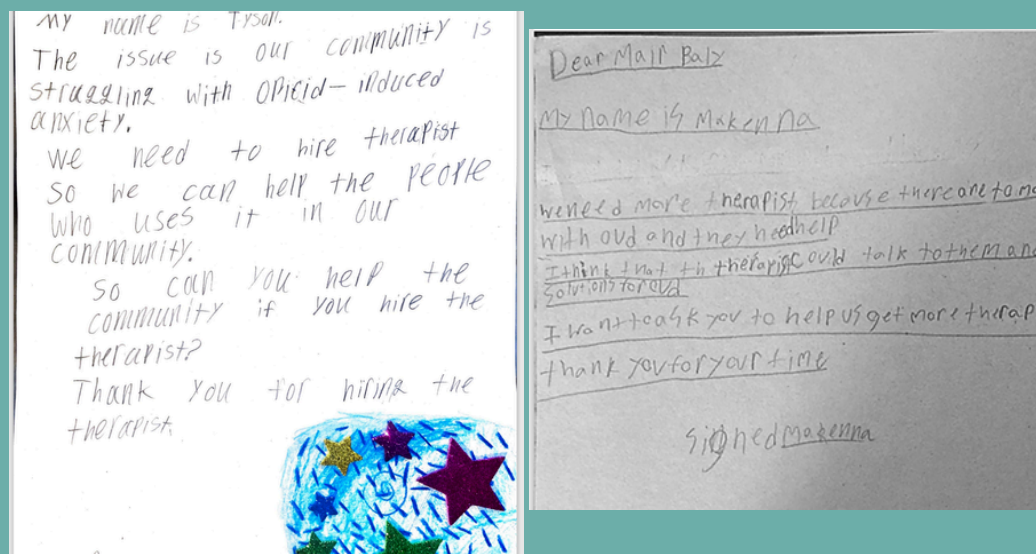 My name is Tyson.
The issue is our community is
struggling with opioid-induced
anxiety.
we need to hire therapist
So we can help the people
who uses it in our
community.
So can you help the
community if you hire the
therapist?
Thank you for hiring the
therapist.
Dear Mair Baly
My name is Makenna
we need more therapist because there are to
with oud and they need help
I think that th therapist could talk to them and
solutions for oud
I want to ask you to help us get more therap
thank you for your time
signed Makenna